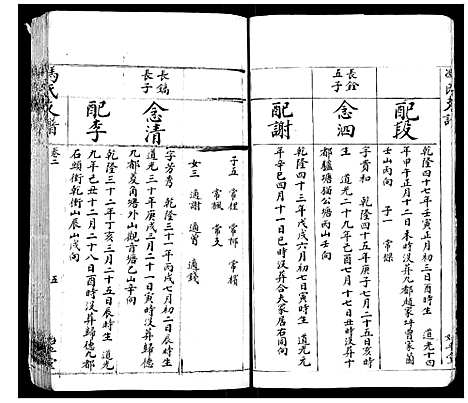 配段
乾隆四十七年壬寅正月初三日酉時生 道光十四
年甲午正月十二日未時沒葬九都趙家坪曹家菌
壬山丙向 子一 常
長銓
五子
念泗
字貴和 乾隆四十五年庚子七月二十五日亥時
生 道光二十九年己酉七月十七日丑時沒葬十
都臚塘貓公塘丙山壬向
配謝
乾隆四十三年戊戌六月初七日寅時生 道光元
年辛巳四月十一日巳時沒葬合夫冢居右同向
氏家譜
卷二
五
子五 常 常 常
常 常文
女三 適謝 適曾 適錢
長鎬
長子
念清
字芳秀 乾隆三十一年丙戌二月初二日辰時生
道光二十年庚戌三月二十一日寅時沒葬歸德
九都菱角塘外山觀音塘乙山辛向
配李
乾隆三十二年丁亥三月二十五日辰時生 道光
九年己丑十二月二十八日酉時沒葬歸德九都
石頭衝乾衝山辰山戌向